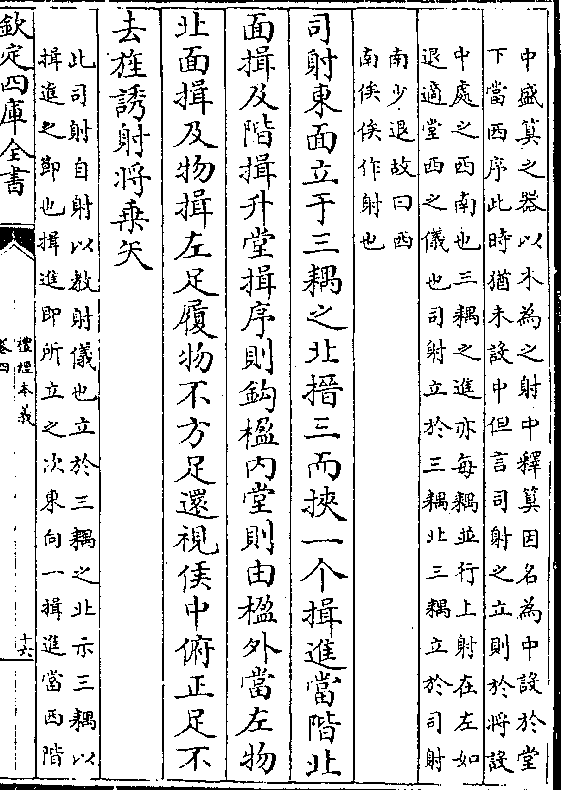 中盛筭之器以木為之射中釋筭因名為中設於堂
下當西序此時猶未設中但言司射之立則於將設
中處之西南也三耦之進亦每耦並行上射在左如
退適堂西之儀也司射立於三耦北三耦立於司射
南少退故曰西
南俟俟作射也
司射東面立于三耦之北搢三而挾一个揖進當階北
面揖及階揖升堂揖序則鈎楹内堂則由楹外當左物
北面揖及物揖左足履物不方足還視侯中俯正足不
去旌誘射將乗矢
此司射自射以教射儀也立於三耦之北示三耦以
揖進之節也揖進即所立之次東向一揖進當西階
欽定四庫全書
禮經本義
卷四
十六